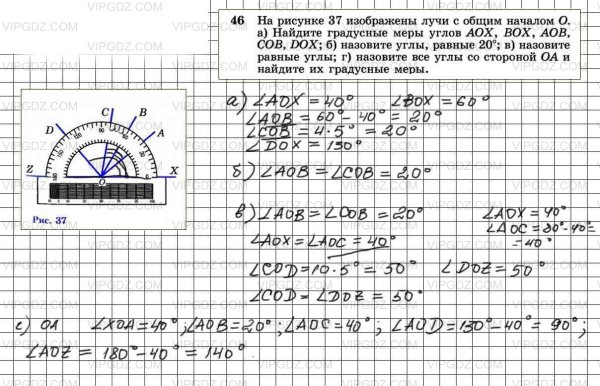 46 На рисунке 37 изображены лучи с общим началом O.
а) Найдите градусные меры углов AOX, BOX, AOB,
COB, DOX; б) назовите углы, равные 20°; в) назовите
равные углы; г) назовите все углы со стороной OA и
найдите их градусные меры.
а) ∠AOX = 40° ∠BOX = 60°
∠AOB = 60° - 40° = 20°
∠COB = 4·5° = 20°
∠DOX = 130°
б) ∠AOB = ∠COB = 20°
в) ∠AOB = ∠COB = 20° ∠AOX = 40°
∠AOC = 80° - 40° =
= 40°
∠AOX = ∠AOC = 40°
∠COD = 10·5° = 50° ∠DOZ = 50°
∠COD = ∠DOZ = 50°
г) OA ∠XOA = 40°; ∠AOB = 20°; ∠AOC = 40°; ∠AOD = 130° - 40° = 90°;
∠AOZ = 180° - 40° = 140°.
C
B
D
A
Z
X
O
Рис. 37
VIPGDZ.COM